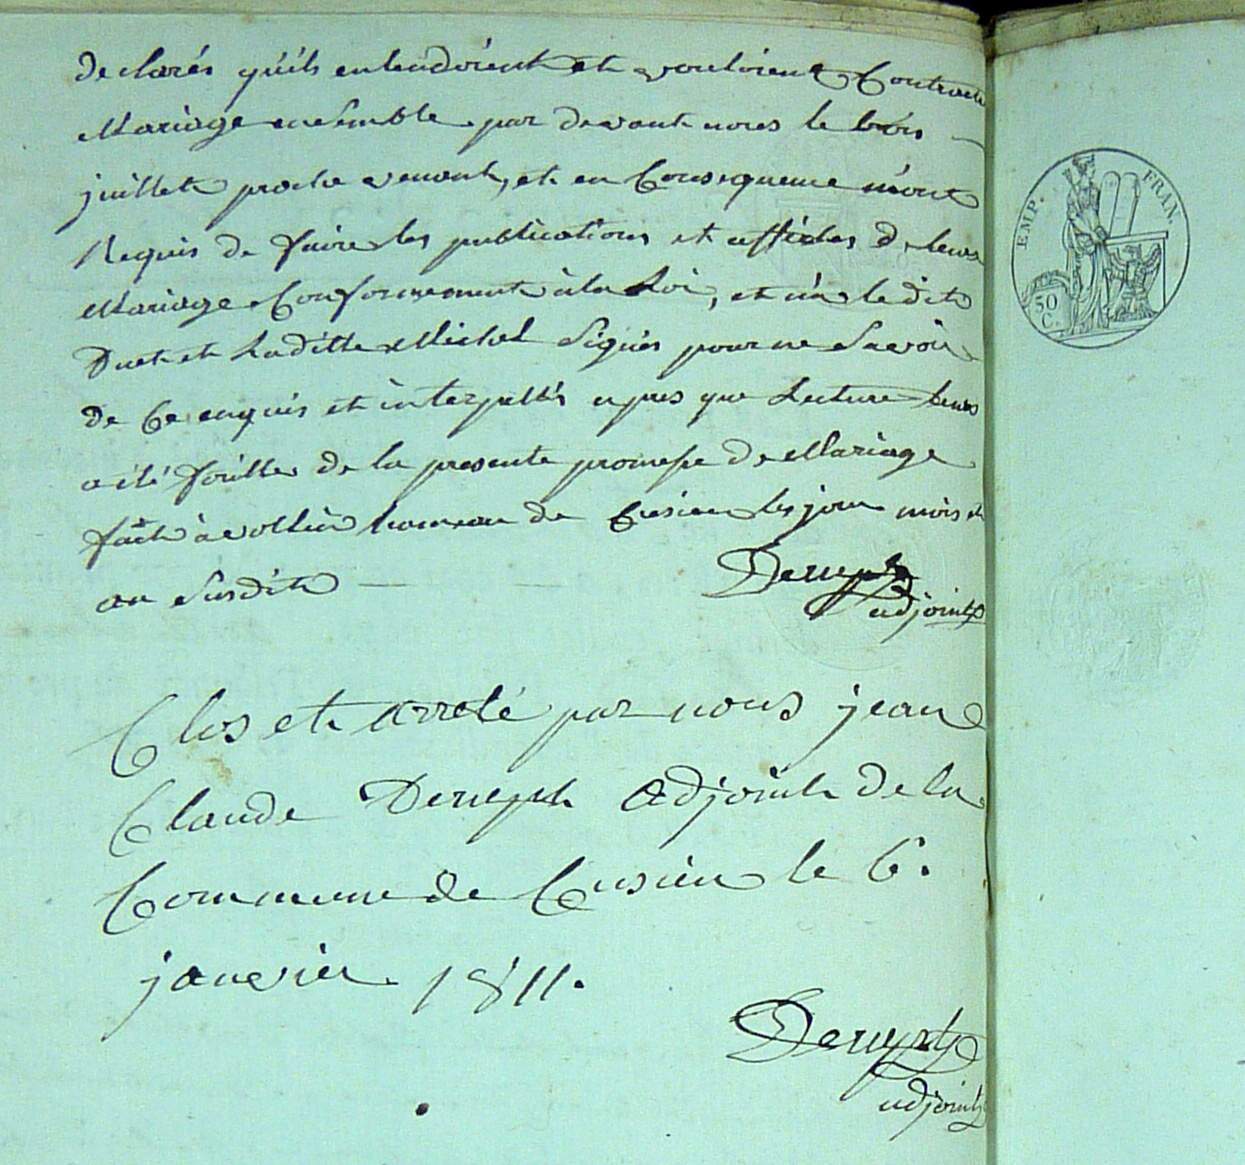 declarés qu'ils entendoient et vouloient Contracte
Mariage ensemble par devant nous le trois
juillet proche venant, et en Consequence m'ont
Requis de faire les publications et affiches de leurs
Mariage Conformement à la Loi, et n'a ledit
Duet et Laditte Michel Signés pour ne Savoir
de Ce enquis et interpellés apres que Lecture leurs
a été faitte de la presente promesse de Mariage
fait à hameau de Cusieu les jour mois et
an Susdit
adjoint
Clos et arreté par nous jean
Claude Adjoint de la
Commune de Cusieu le 6.
janvier 1811.
adjoint
EMP. FRAN.
50
C.